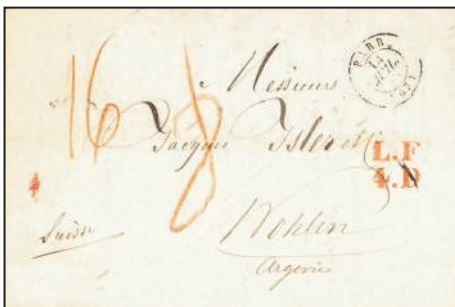 PARIS
Messieurs
16 8
Jacques Isler & Cie
L.F
4.D
Suisse
Wohlen
Argovie